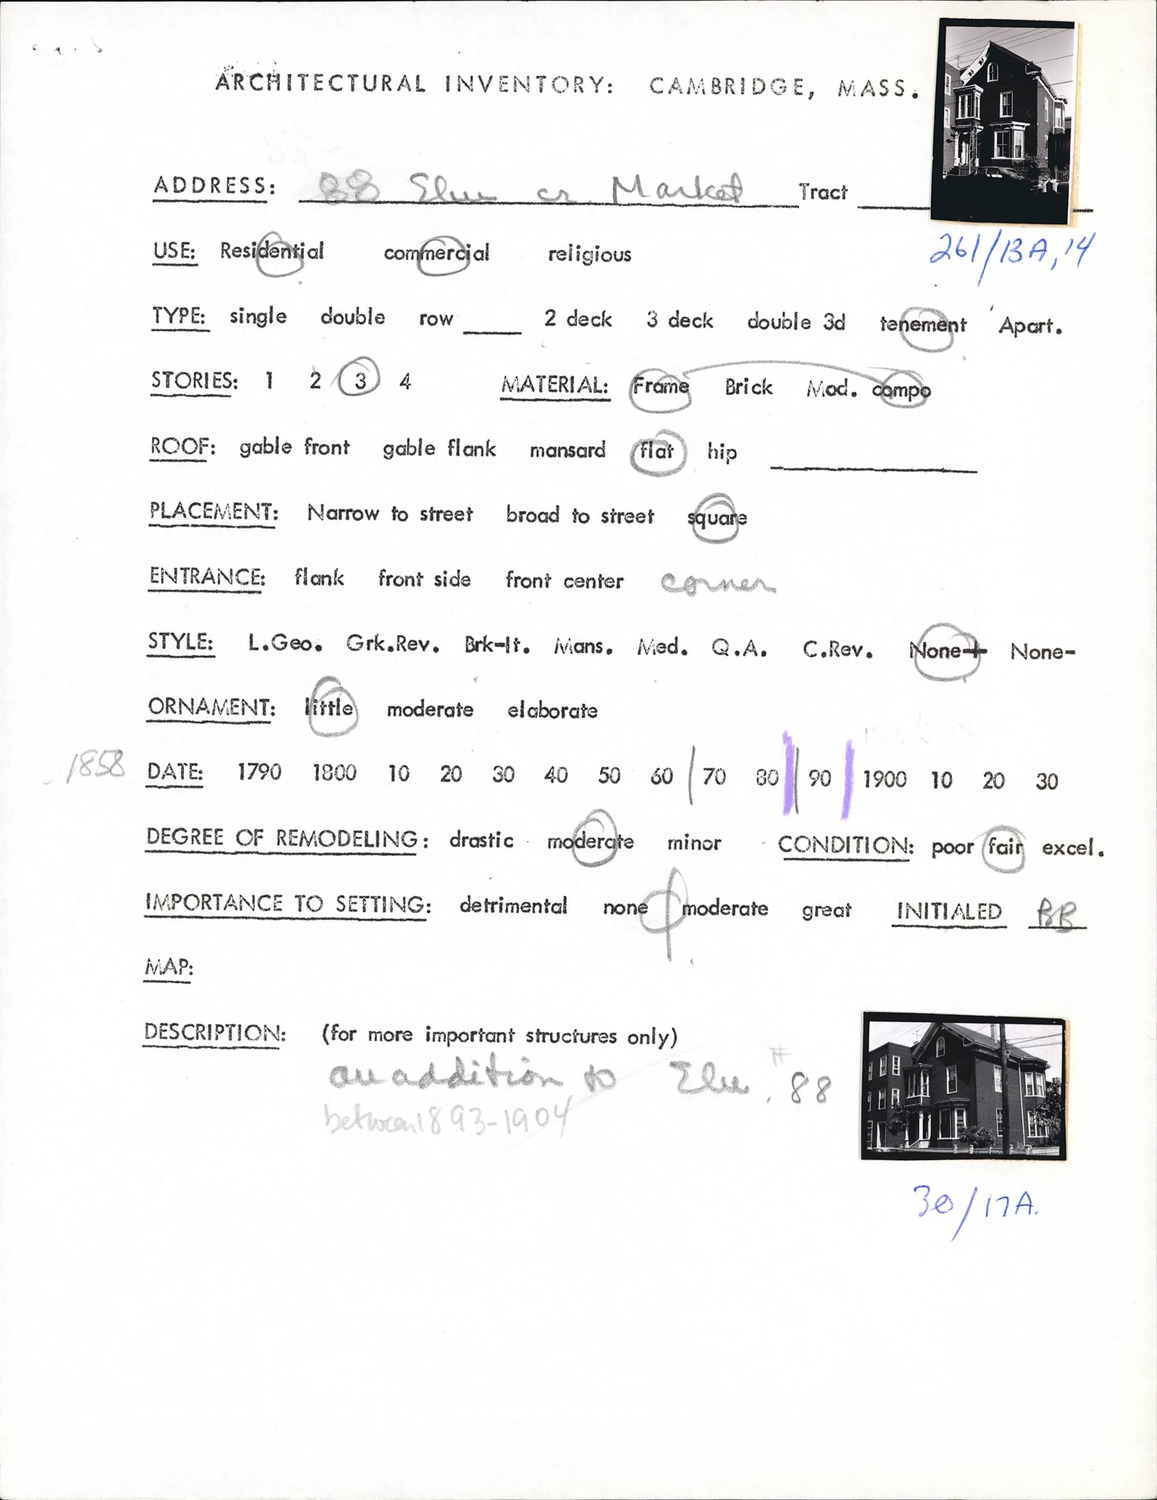 ARCHITECTURAL INVENTORY: CAMBRIDGE, MASS.
ADDRESS: 88 Elm cr. Market Tract
261/13A,14
USE: Residential commercial religious
TYPE: single double row 2 deck 3 deck double 3d tenement Apart.
STORIES: 1 2 3 4 MATERIAL: Frame Brick Mod. compo
ROOF: gable front gable flank mansard flat hip
PLACEMENT: Narrow to street broad to street square
ENTRANCE: flank front side front center corner
STYLE: L.Geo. Grk.Rev. Brk-It. Mans. Med. Q.A. C.Rev. None+ None-
ORNAMENT: little moderate elaborate
1858 DATE: 1790 1800 10 20 30 40 50 60 70 80 90 1900 10 20 30
DEGREE OF REMODELING: drastic moderate minor CONDITION: poor fair excel.
IMPORTANCE TO SETTING: detrimental none moderate great INITIALED BB
MAP:
DESCRIPTION: (for more important structures only)
an addition to Elm # 88
between 1893-1904
30/17A.